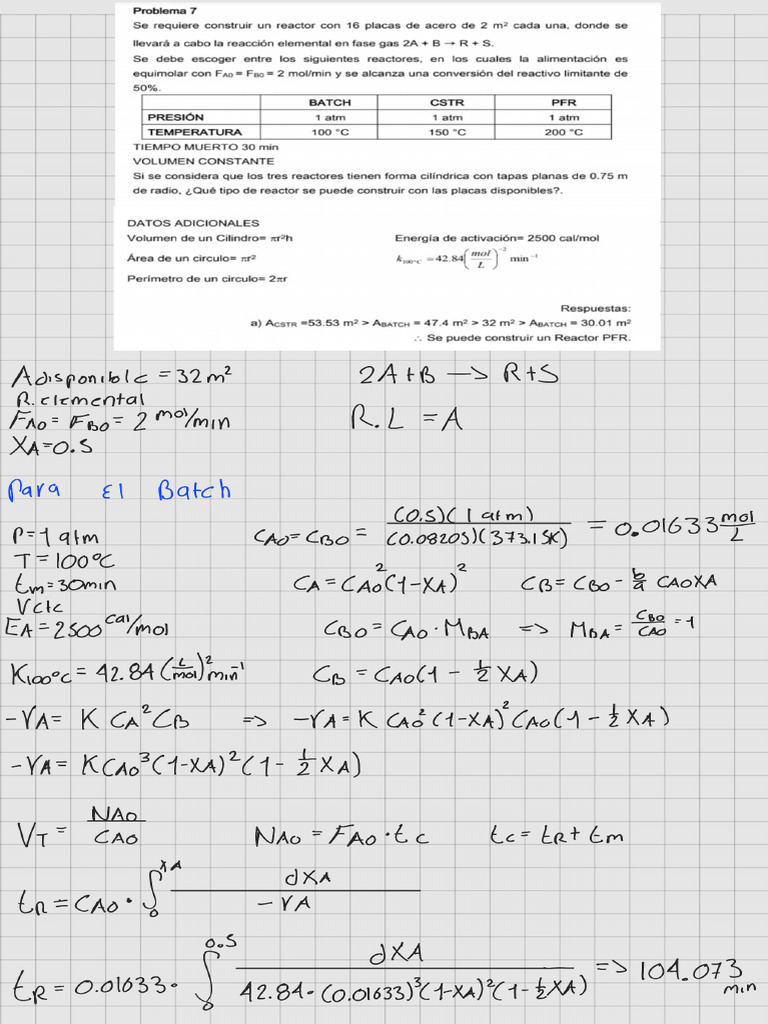 Problema 7
Se requiere construir un reactor con 16 placas de acero de 2 m² cada una, donde se
llevará a cabo la reacción elemental en fase gas 2A + B → R + S.
Se debe escoger entre los siguientes reactores, en los cuales la alimentación es
equimolar con FA0 = FB0 = 2 mol/min y se alcanza una conversión del reactivo limitante de
50%.
BATCH CSTR PFR
PRESIÓN 1 atm 1 atm 1 atm
TEMPERATURA 100 °C 150 °C 200 °C
TIEMPO MUERTO 30 min
VOLUMEN CONSTANTE
Si se considera que los tres reactores tienen forma cilíndrica con tapas planas de 0.75 m
de radio, ¿Qué tipo de reactor se puede construir con las placas disponibles?.
DATOS ADICIONALES
Volumen de un Cilindro= πr²h Energía de activación= 2500 cal/mol
Área de un circulo= πr² k100°C = 42.84 (mol/L)⁻² min⁻¹
Perímetro de un circulo= 2πr
Respuestas:
a) ACSTR =53.53 m² > ABATCH = 47.4 m² > 32 m² > ABATCH = 30.01 m²
∴ Se puede construir un Reactor PFR.
Adisponible = 32m² 2A+B → R+S
R. elemental
FAO = FBO = 2 mol/min R.L = A
XA=0.5
Para El Batch
P=1 atm CAO = CBO = (0.5)(1 atm)/(0.08205)(373.15K) = 0.01633 mol/L
T=100°C
tm=30min CA² = CAO²(1-XA)² CB = CBO - b/a CAOXA
Vcte
EA=2500 cal/mol CBO = CAO · MBA => MBA = CBO/CAO = 1
K100°C = 42.84 (L/mol)² min⁻¹ CB = CAO(1 - 1/2 XA)
-rA = K CA² CB => -rA = K CAO²(1-XA)² CAO(1 - 1/2 XA)
-rA = KCAO³(1-XA)²(1 - 1/2 XA)
VT = NAO/CAO NAO = FAO · tc tc = tR + tm
tR = CAO · ∫₀^XA dXA/-rA
tR = 0.01633 · ∫₀^0.5 dXA/42.84·(0.01633)³(1-XA)²(1-1/2XA) => 104.073 min